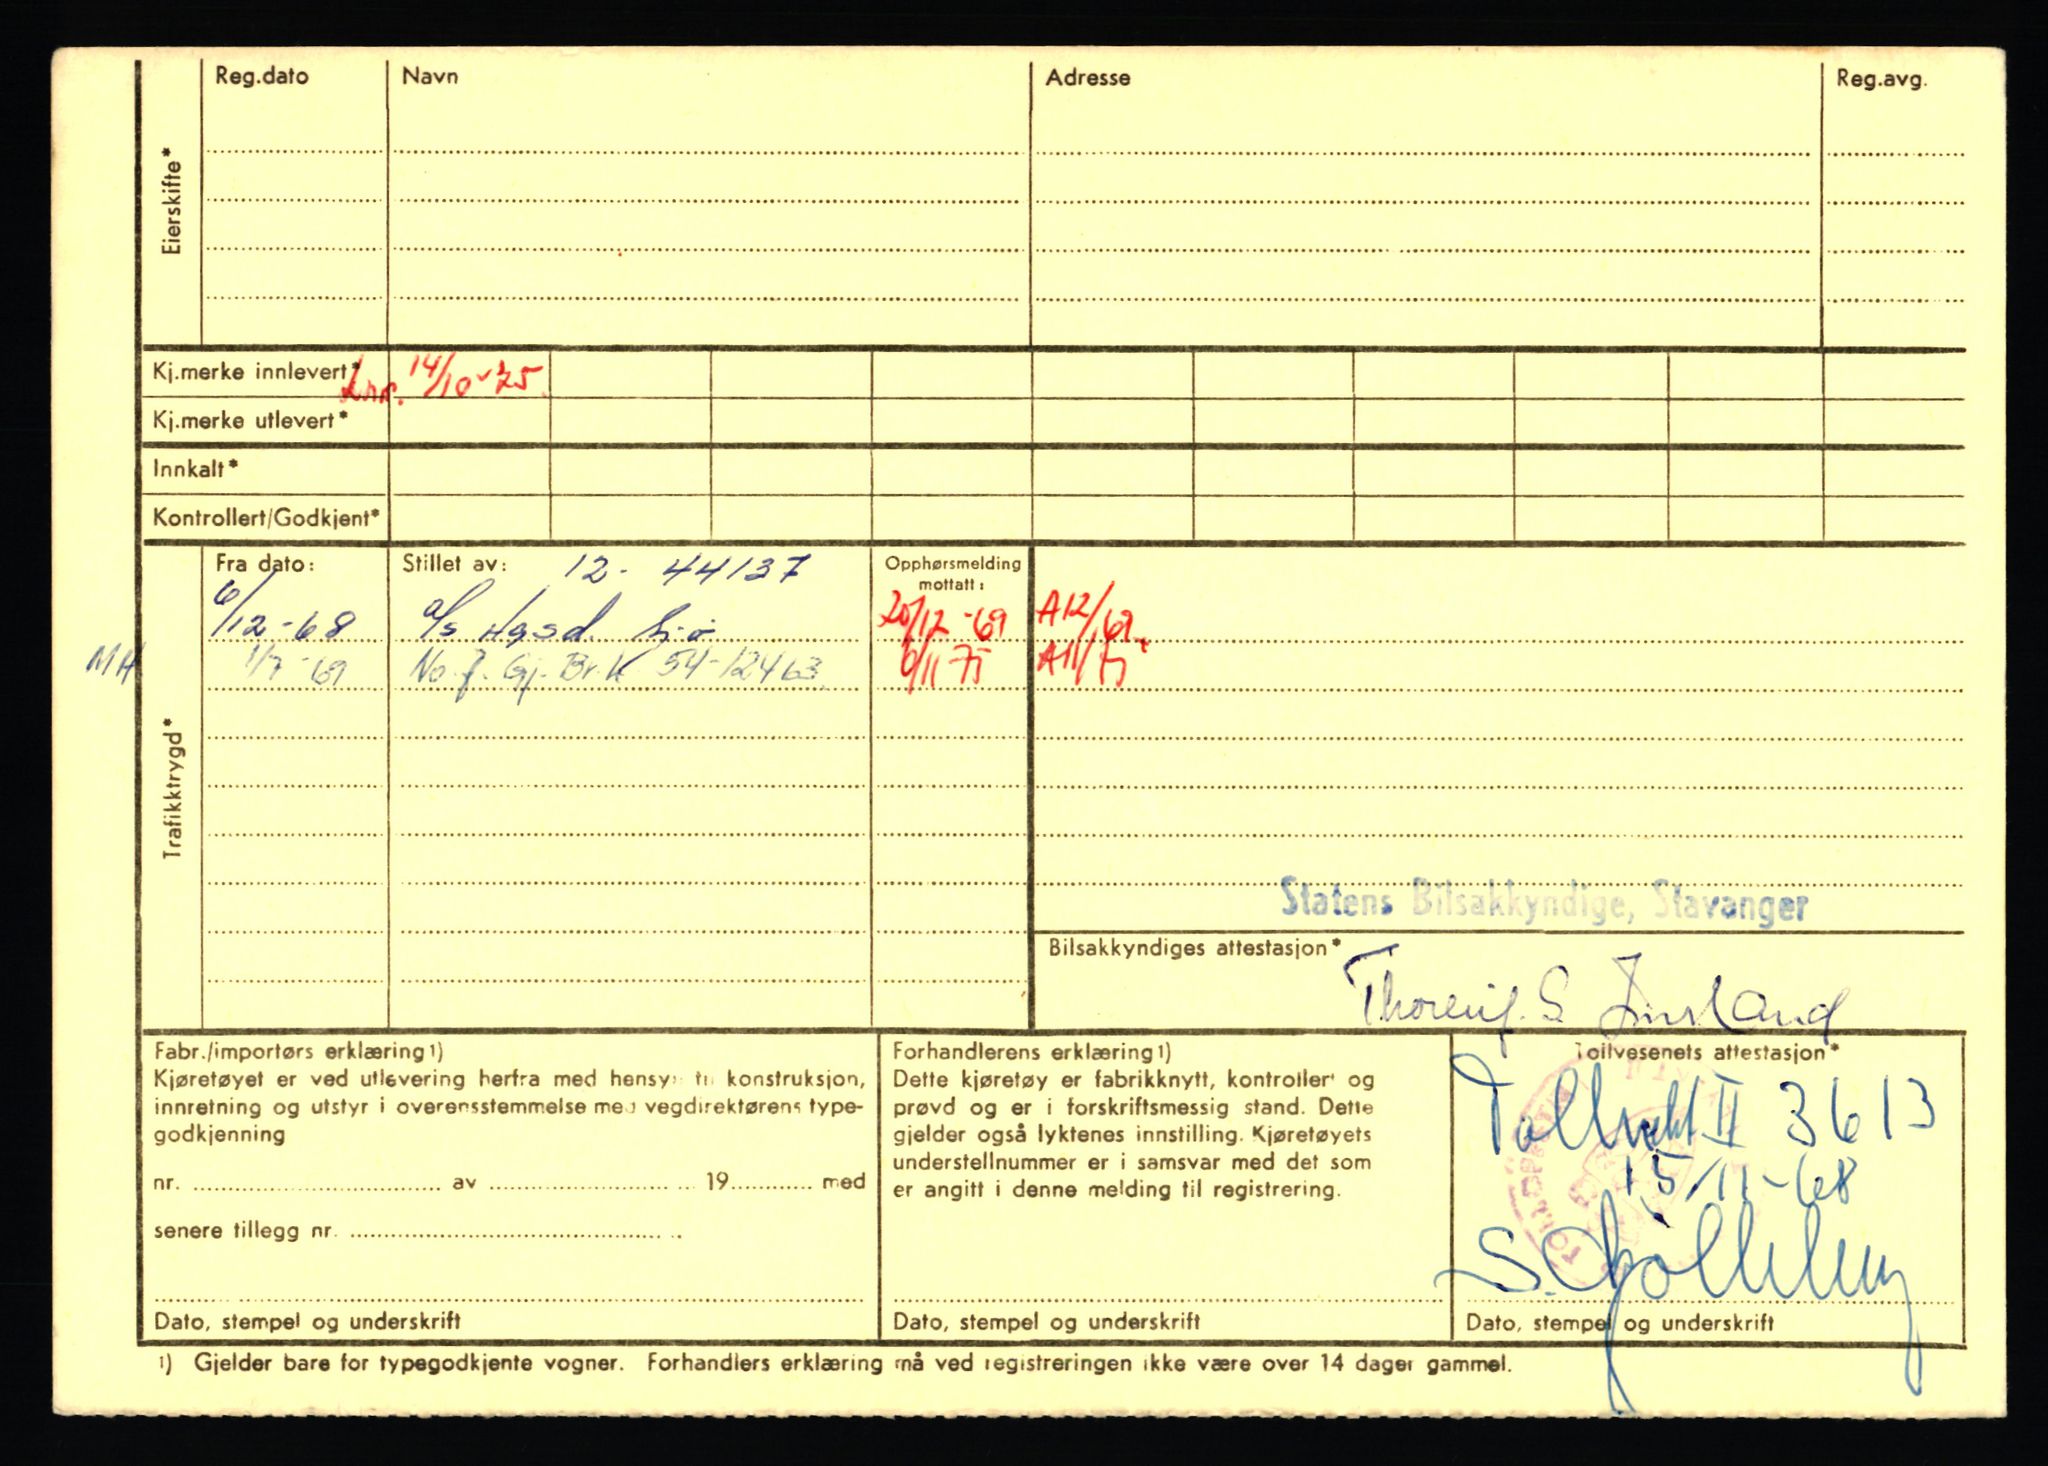 Eierskifte*
Reg.dato Navn Adresse Reg.avg.
Kj.merke innlevert* 14/10-75.
Kj.merke utlevert*
Innkalt*
Kontrollert/Godkjent*
Trafikktrygd*
Fra dato: Stillet av: 12- 44137 Opphørsmelding mottatt:
6/12-68 a/s Hgsd. 20/12-69 A12/69
MH 1/7-69 No. f. Gj. Br.k 54-12463 6/11 75 A11/75
Statens Bilsakkyndige, Stavanger
Bilsakkyndiges attestasjon*
Thoreif. S.
Fabr./importørs erklæring 1)
Kjøretøyet er ved utlevering herfra med hensyn til konstruksjon,
innretning og utstyr i overensstemmelse med vegdirektørens type-
godkjenning
nr. av 19 med
senere tillegg nr.
Dato, stempel og underskrift
Forhandlerens erklæring 1)
Dette kjøretøy er fabrikknytt, kontrollert og
prøvd og er i forskriftsmessig stand. Dette
gjelder også lyktenes innstilling. Kjøretøyets
understellnummer er i samsvar med det som
er angitt i denne melding til registrering.
Dato, stempel og underskrift
Tollvesenets attestasjon*
II 3613
15/11-68
Dato, stempel og underskrift
1) Gjelder bare for typegodkjente vogner. Forhandlers erklæring må ved registreringen ikke være over 14 dager gammel.